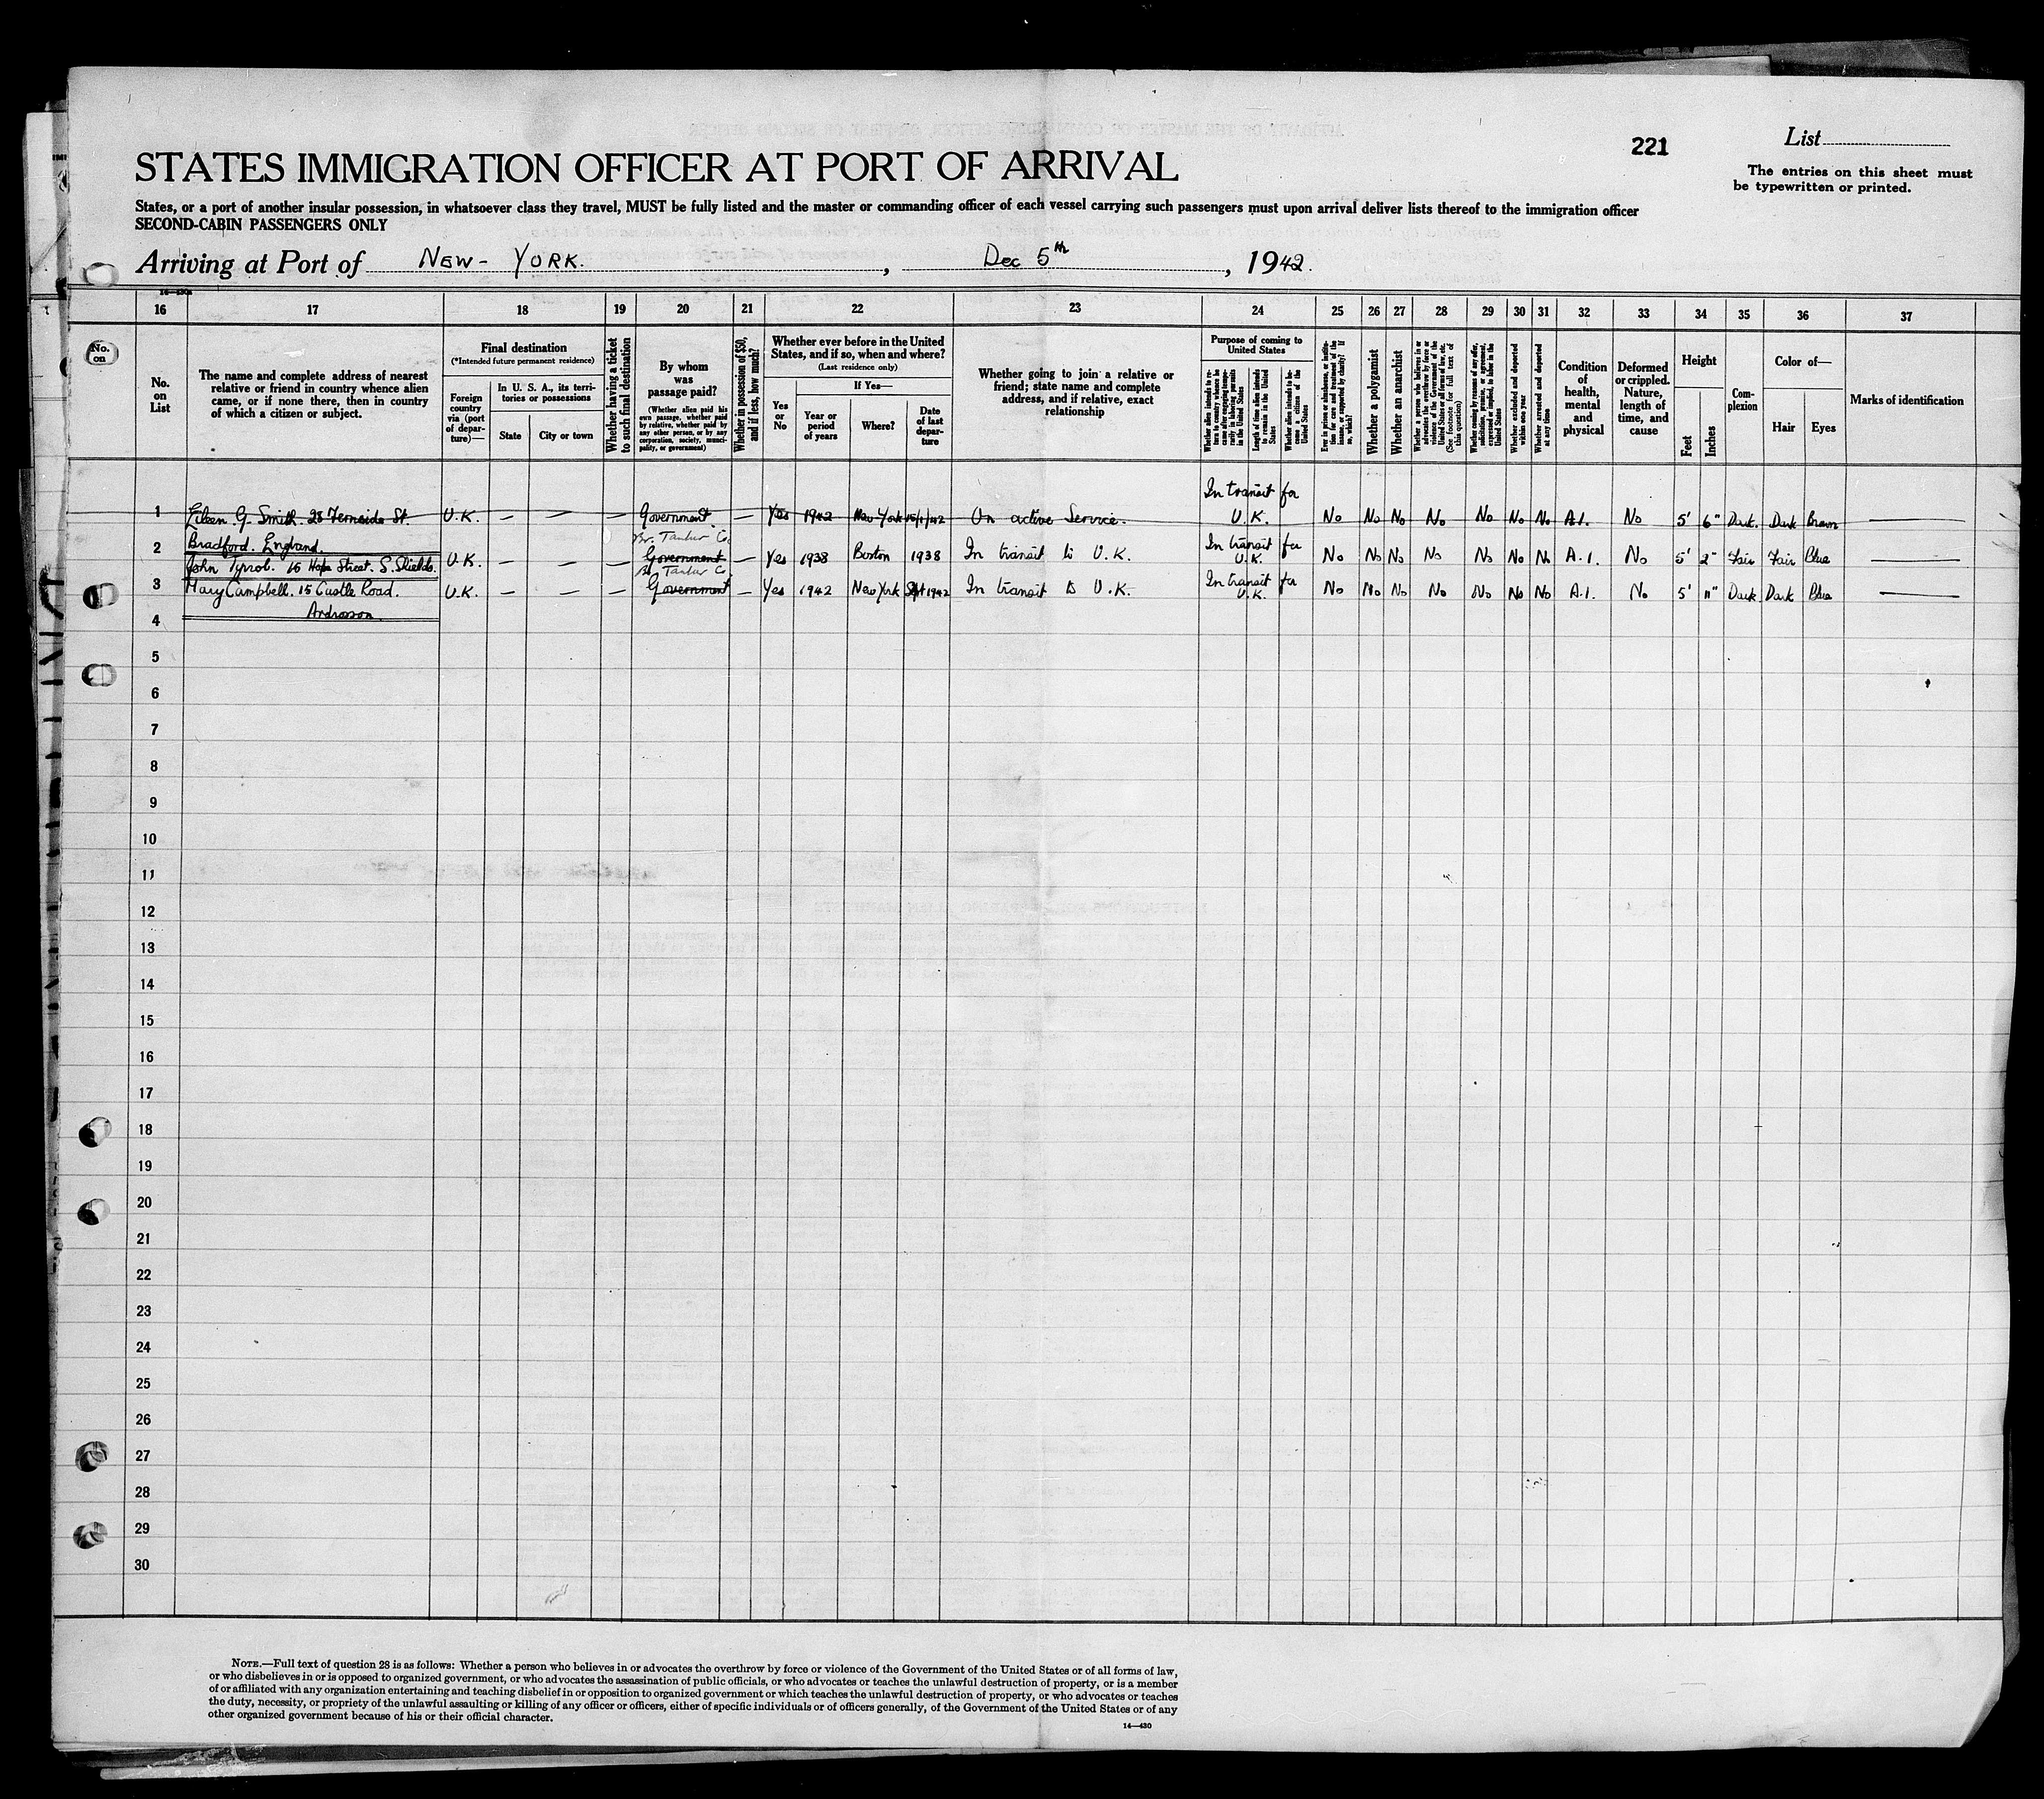 221
List
The entries on this sheet must
be typewritten or printed.
STATES IMMIGRATION OFFICER AT PORT OF ARRIVAL
States, or a port of another insular possession, in whatsoever class they travel, MUST be fully listed and the master or commanding officer of each vessel carrying such passengers must upon arrival deliver lists thereof to the immigration officer
SECOND-CABIN PASSENGERS ONLY
Arriving at Port of NEW-YORK. , Dec 5th , 1942.
16 17 18 19 20 21 22 23 24 25 26 27 28 29 30 31 32 33 34 35 36 37
No. on
No. on List
The name and complete address of nearest
relative or friend in country whence alien
came, or if none there, then in country
of which a citizen or subject.
Final destination
(*Intended future permanent residence)
Foreign country via (port of departure)—
In U. S. A., its territories or possessions
State
City or town
Whether having a ticket to such final destination
By whom was passage paid?
(Whether alien paid his own passage, whether paid by relative, whether paid by any other person, or by any corporation, society, municipality, or government)
Whether in possession of $50, and if less, how much?
Whether ever before in the United States, and if so, when and where?
(Last residence only)
Yes or No
If Yes—
Year or period of years
Where?
Date of last departure
Whether going to join a relative or
friend; state name and complete
address, and if relative, exact
relationship
Purpose of coming to United States
Whether alien intends to return to country whence he came after engaging temporarily in laboring pursuits in the United States
Length of time alien intends to remain in the United States
Whether alien intends to become a citizen of the United States
Ever in prison or almshouse, or institution for care and treatment of the insane, or supported by charity? If so, which?
Whether a polygamist
Whether an anarchist
Whether a person who believes in or advocates the overthrow by force or violence of the Government of the United States or all forms of law, etc. (See footnote for full text of this question)
Whether coming by reason of any offer, solicitation, promise, or agreement, expressed or implied, to labor in the United States
Whether excluded and deported within one year
Whether arrested and deported at any time
Condition of health, mental and physical
Deformed or crippled. Nature, length of time, and cause
Height
Feet
Inches
Complexion
Color of—
Hair
Eyes
Marks of identification
1 Eileen G. Smith. 28 Ferncide St. U.K. — — — Government. — Yes 1942 New York 15/1/42 On active Service. In transit for U.K. No No No No No No No A.1. No 5' 6" Dark. Dark Brown —
Bradford. England.
2 John Tyrrob. 16 Hope Street. S. Shields. U.K. — — — Br. Tanker Co. Government — Yes 1938 Boston 1938 In transit to U.K. In transit for U.K. No No No No No No No A.1. No 5' 2" Fair Fair Blue —
3 Mary Campbell. 15 Castle Road. U.K. — — — Br. Tanker Co Government — Yes 1942 New York Sept 1942 In transit to U.K. In transit for U.K. No No No No No No No A.1. No 5' 11" Dark Dark Blue —
Ardrosson.
4
5
6
7
8
9
10
11
12
13
14
15
16
17
18
19
20
21
22
23
24
25
26
27
28
29
30
NOTE.—Full text of question 28 is as follows: Whether a person who believes in or advocates the overthrow by force or violence of the Government of the United States or of all forms of law,
or who disbelieves in or is opposed to organized government, or who advocates the assassination of public officials, or who advocates or teaches the unlawful destruction of property, or is a member
of or affiliated with any organization entertaining and teaching disbelief in or opposition to organized government or which teaches the unlawful destruction of property, or who advocates or teaches
the duty, necessity, or propriety of the unlawful assaulting or killing of any officer or officers, either of specific individuals or of officers generally, of the Government of the United States or of any
other organized government because of his or their official character.
14—430